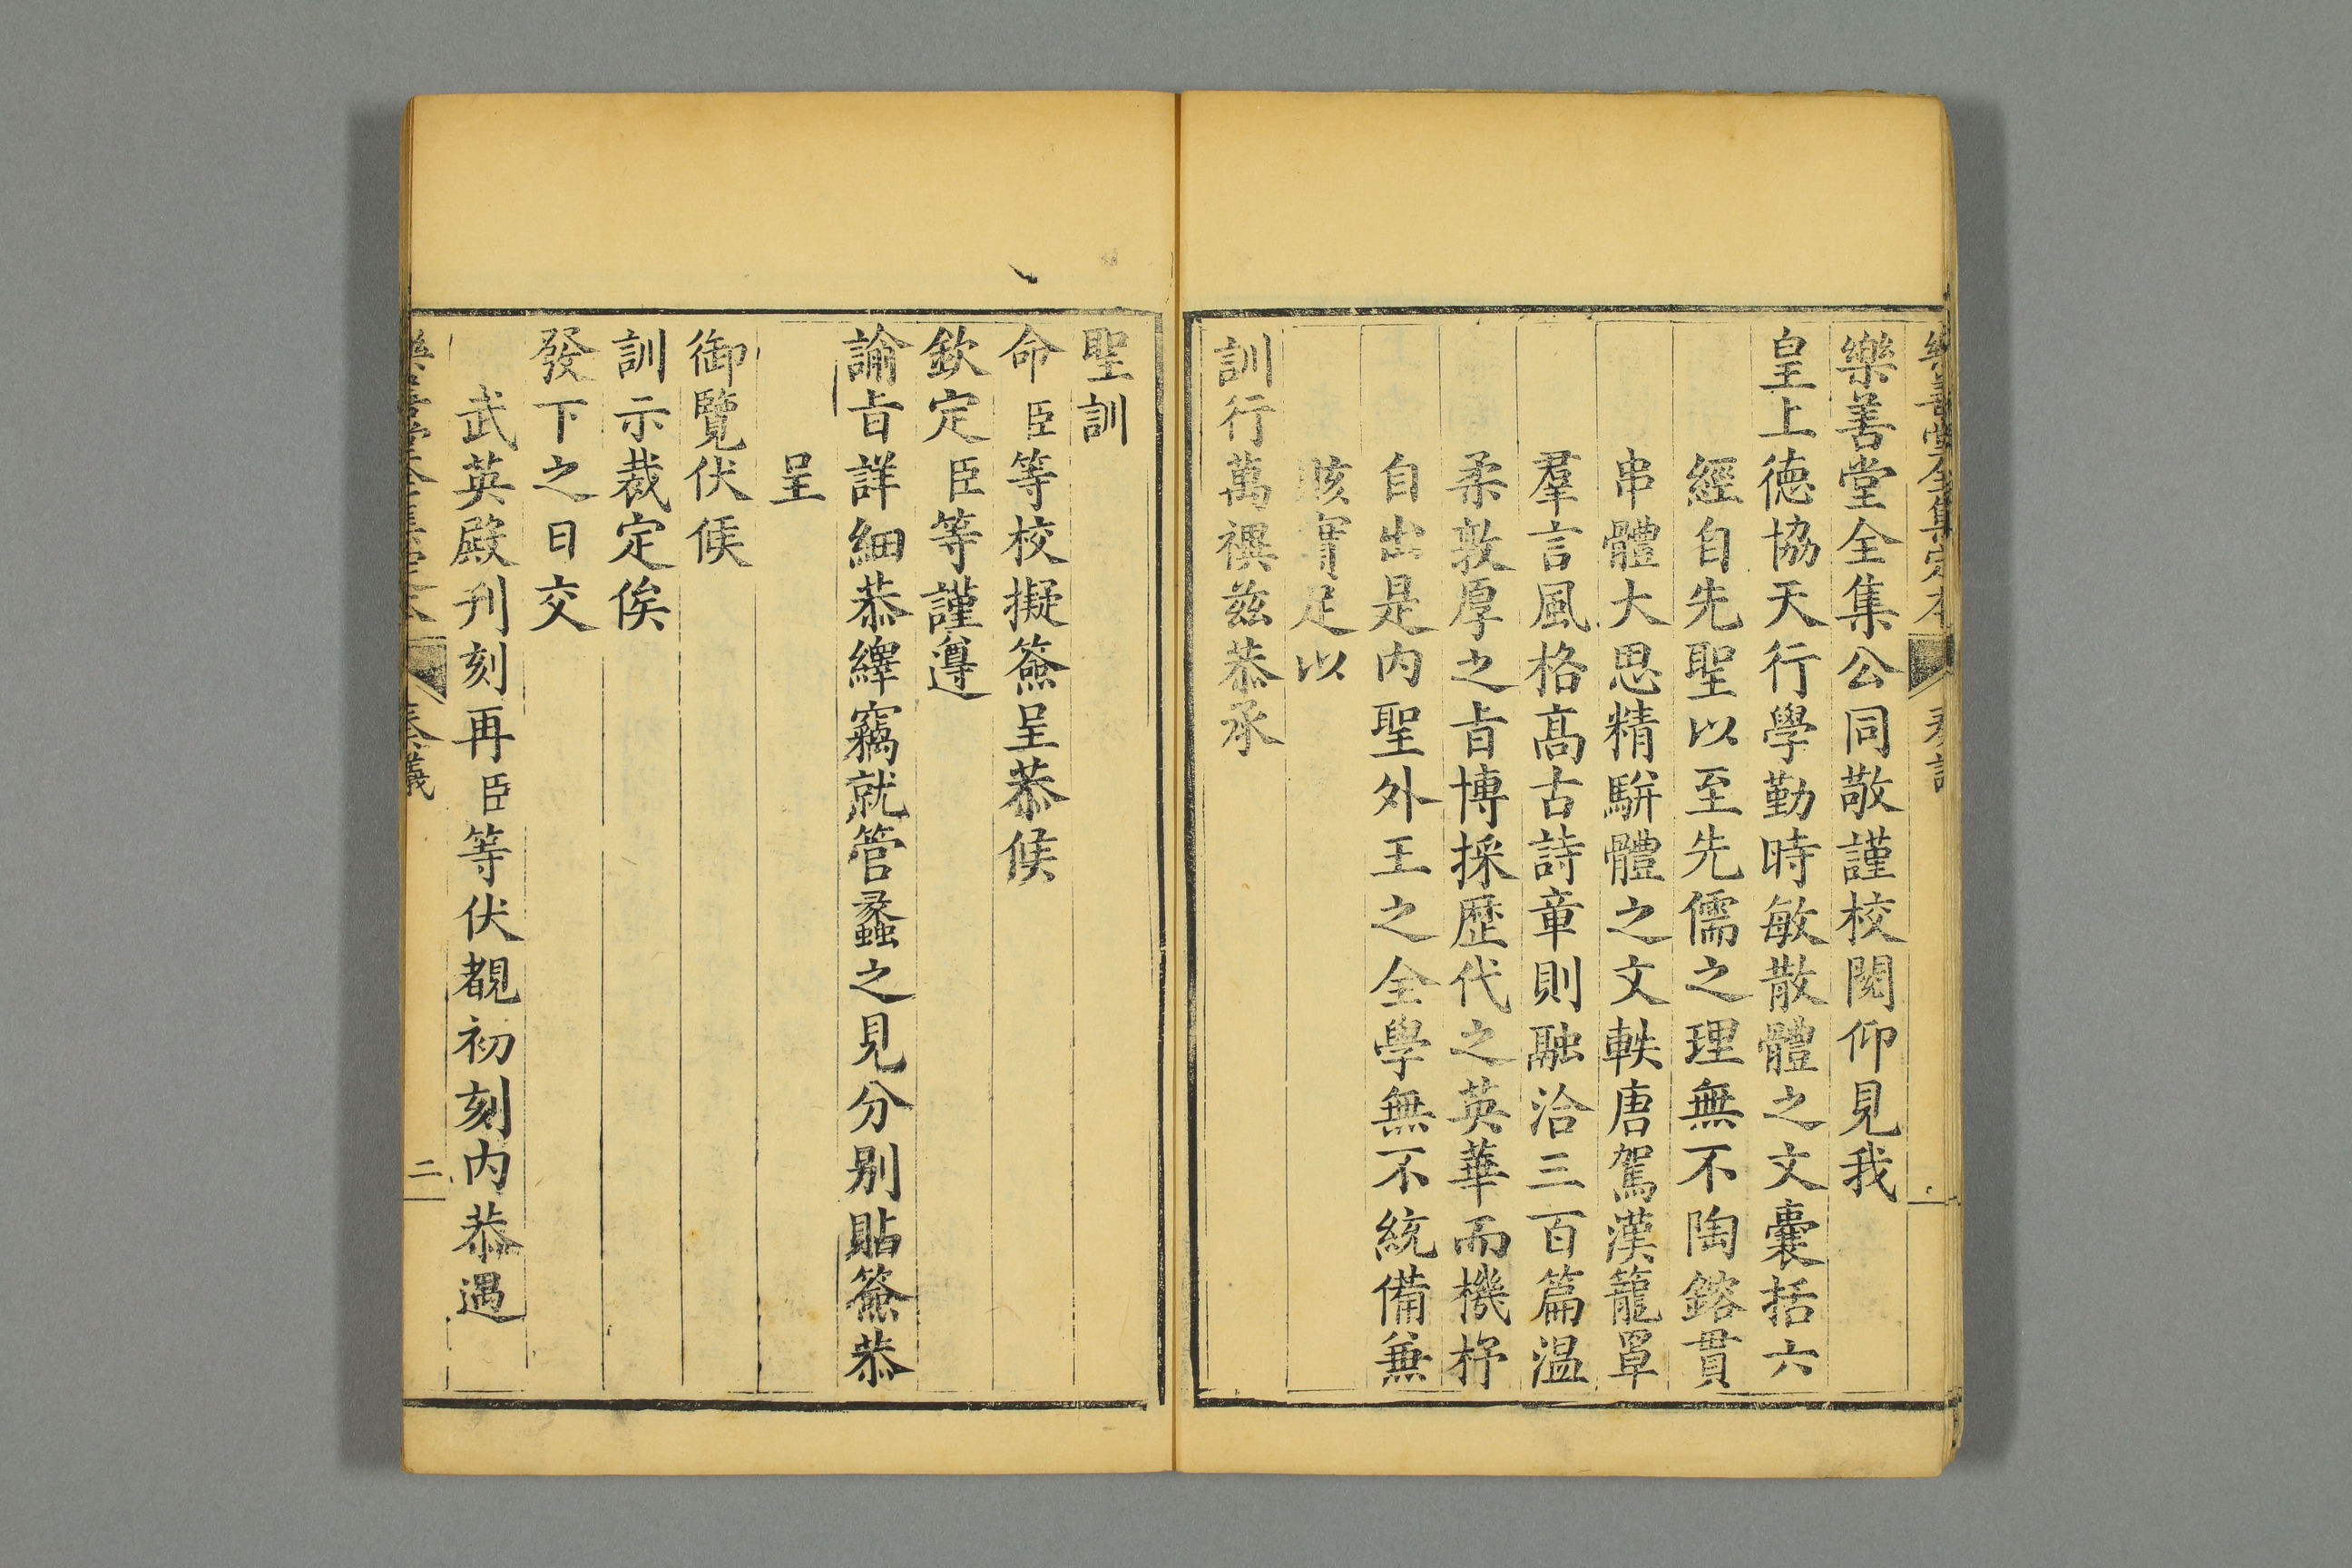 樂善堂全集公同敬謹校閱仰見我
皇上德協天行學勤時敏散體之文囊括六
經自先聖以至先儒之理無不陶鎔貫
串體大思精駢體之文軼唐駕漢籠罩
羣言風格高古詩章則融洽三百篇温
柔敦厚之㫖博採歷代之英華而機杼
自出是内聖外王之全學無不統備兼
賅實足以
訓行萬禩兹恭承
聖訓
命臣等校擬簽呈恭候
欽定臣等謹遵
諭㫖詳細恭繹竊就管蠡之見分别貼簽恭
呈
御覽伏候
訓示裁定俟
發下之日交
武英殿刋刻再臣等伏覩初刻内恭遇
樂善堂全集定本 奏議 二